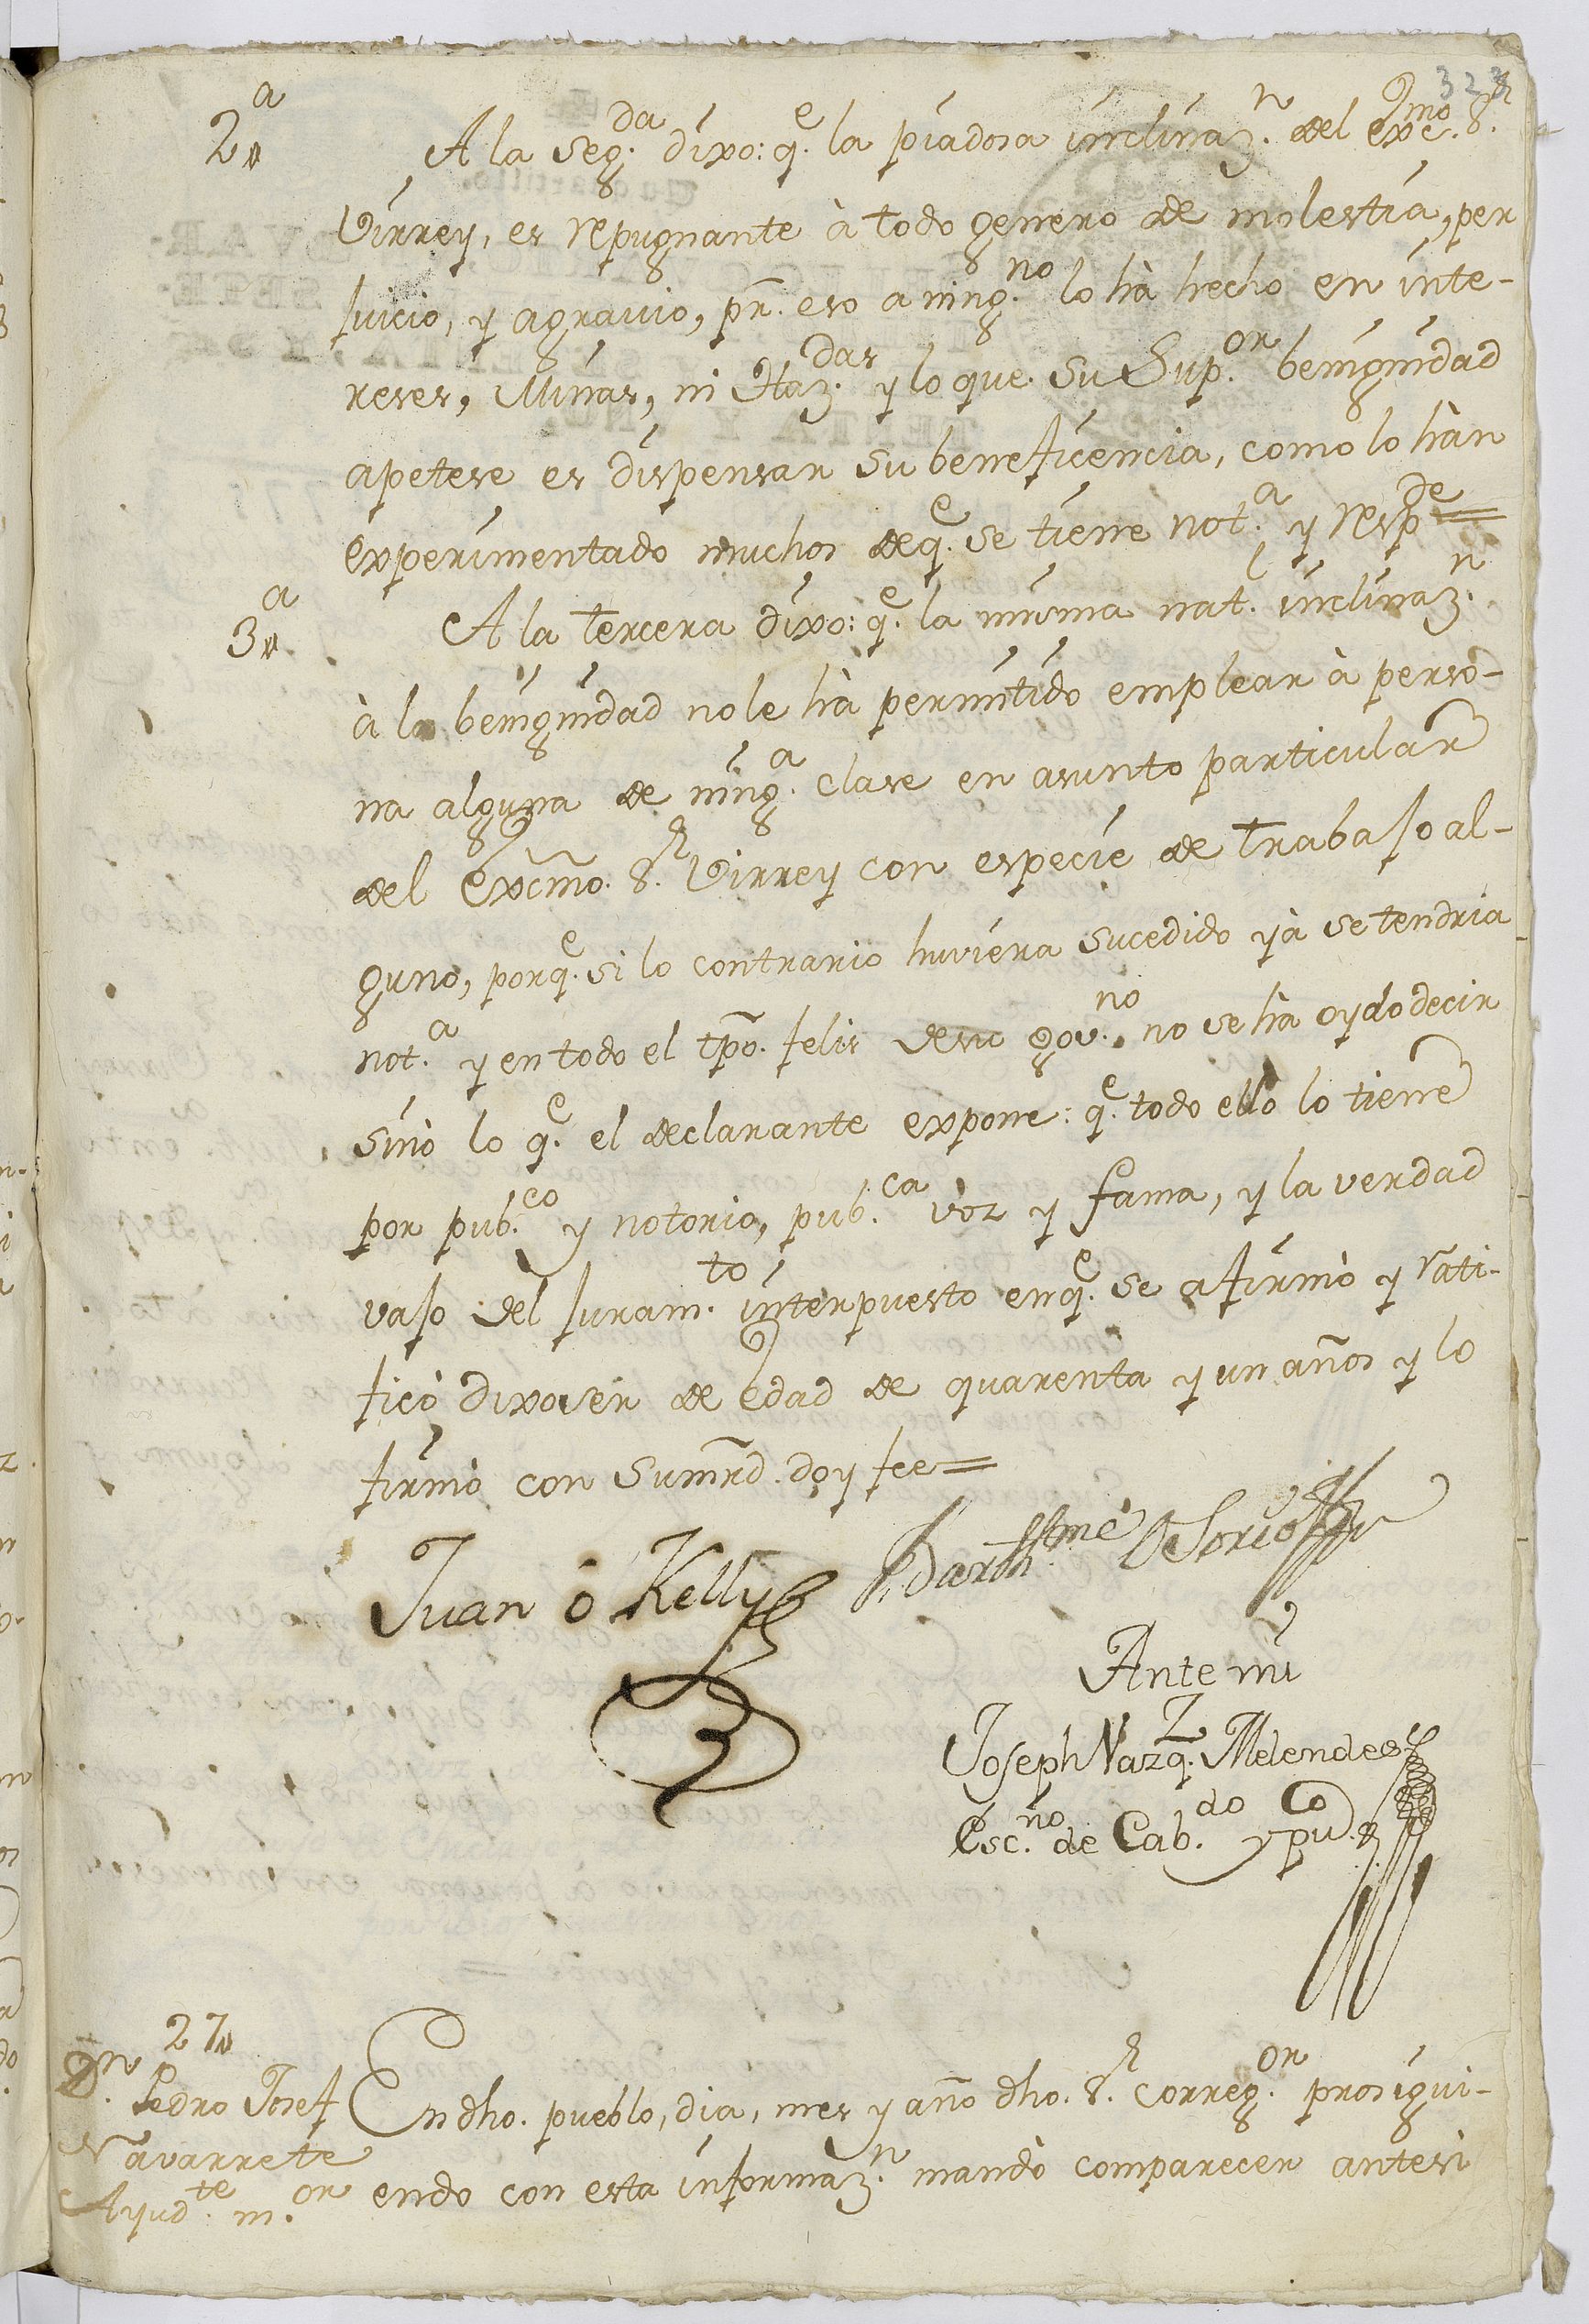 323
2ª
A la seg.da dixo: q.e la piadosa inclinaz.n del Exc.mo S.r
Virrey, es repugnante à todo genero de molestia, per
juicio, y agravio, pr. eso a ning.no lo hà hecho en inte-
reses, Minas, ni Haz.das y lo que su Sup.or benignidad
apetese es dispensar su beneficencia, como lo hàn
experimentado muchos deq.e se tiene not.a y resp.de=
3ª
A la tercera dixo: q.e la misma nat.l inclinaz.n
à la benignidad nole hà permitido emplear à perso-
na alguna de ning.a clase en asunto particular
del Excmô. S.r Virrey con especie de trabajo al-
guno, porq.e si lo contrario huviera sucedido yà setendria
not.a y en todo el tpô. felis desu gov.no no se hà oydo decir
sinò lo q.e el declarante expone: q.e todo ello lo tiene
por pub.co y notorio, pub.ca vòz y fama, y la verdad
vajo del juram.to interpuesto enq.e se afirmò y rati-
ficò dixo ser de edad de quarenta y un años y lo
firmò con sumrd. doy fee=
Juan ô Kelly
Barth.me Osorio
Ante mi
Joseph Vazq.z Melendes
Esc.no de Cab.do y pu.co
27
D.n Pedro Josef
Navarrete
Ayud.te m.or
En dho. pueblo, dia, mes y año dho. S.r Correg.or prosigui-
endo con esta informaz.n mandò comparecer antesi